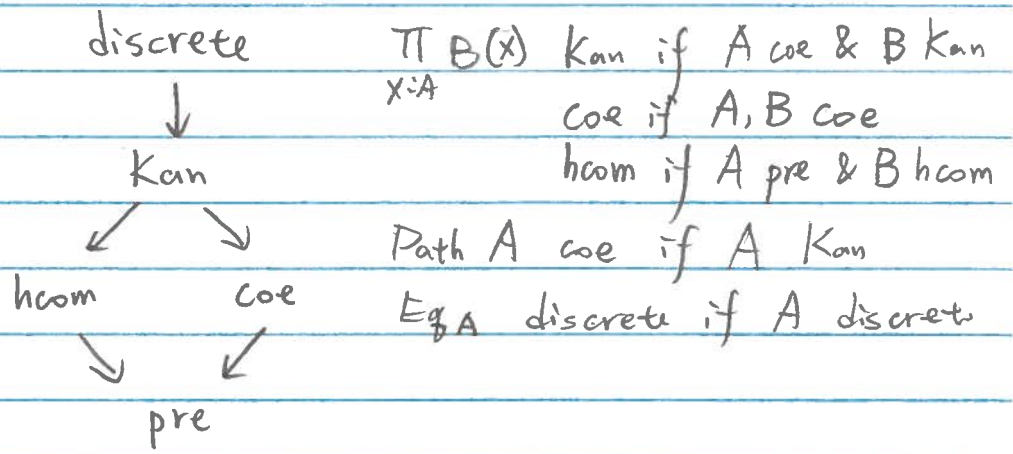 discrete
Kan
hcom coe
pre
Π B(x) Kan if A coe & B Kan
x:A
coe if A, B coe
hcom if A pre & B hcom
Path A coe if A Kan
Eq A discrete if A discrete